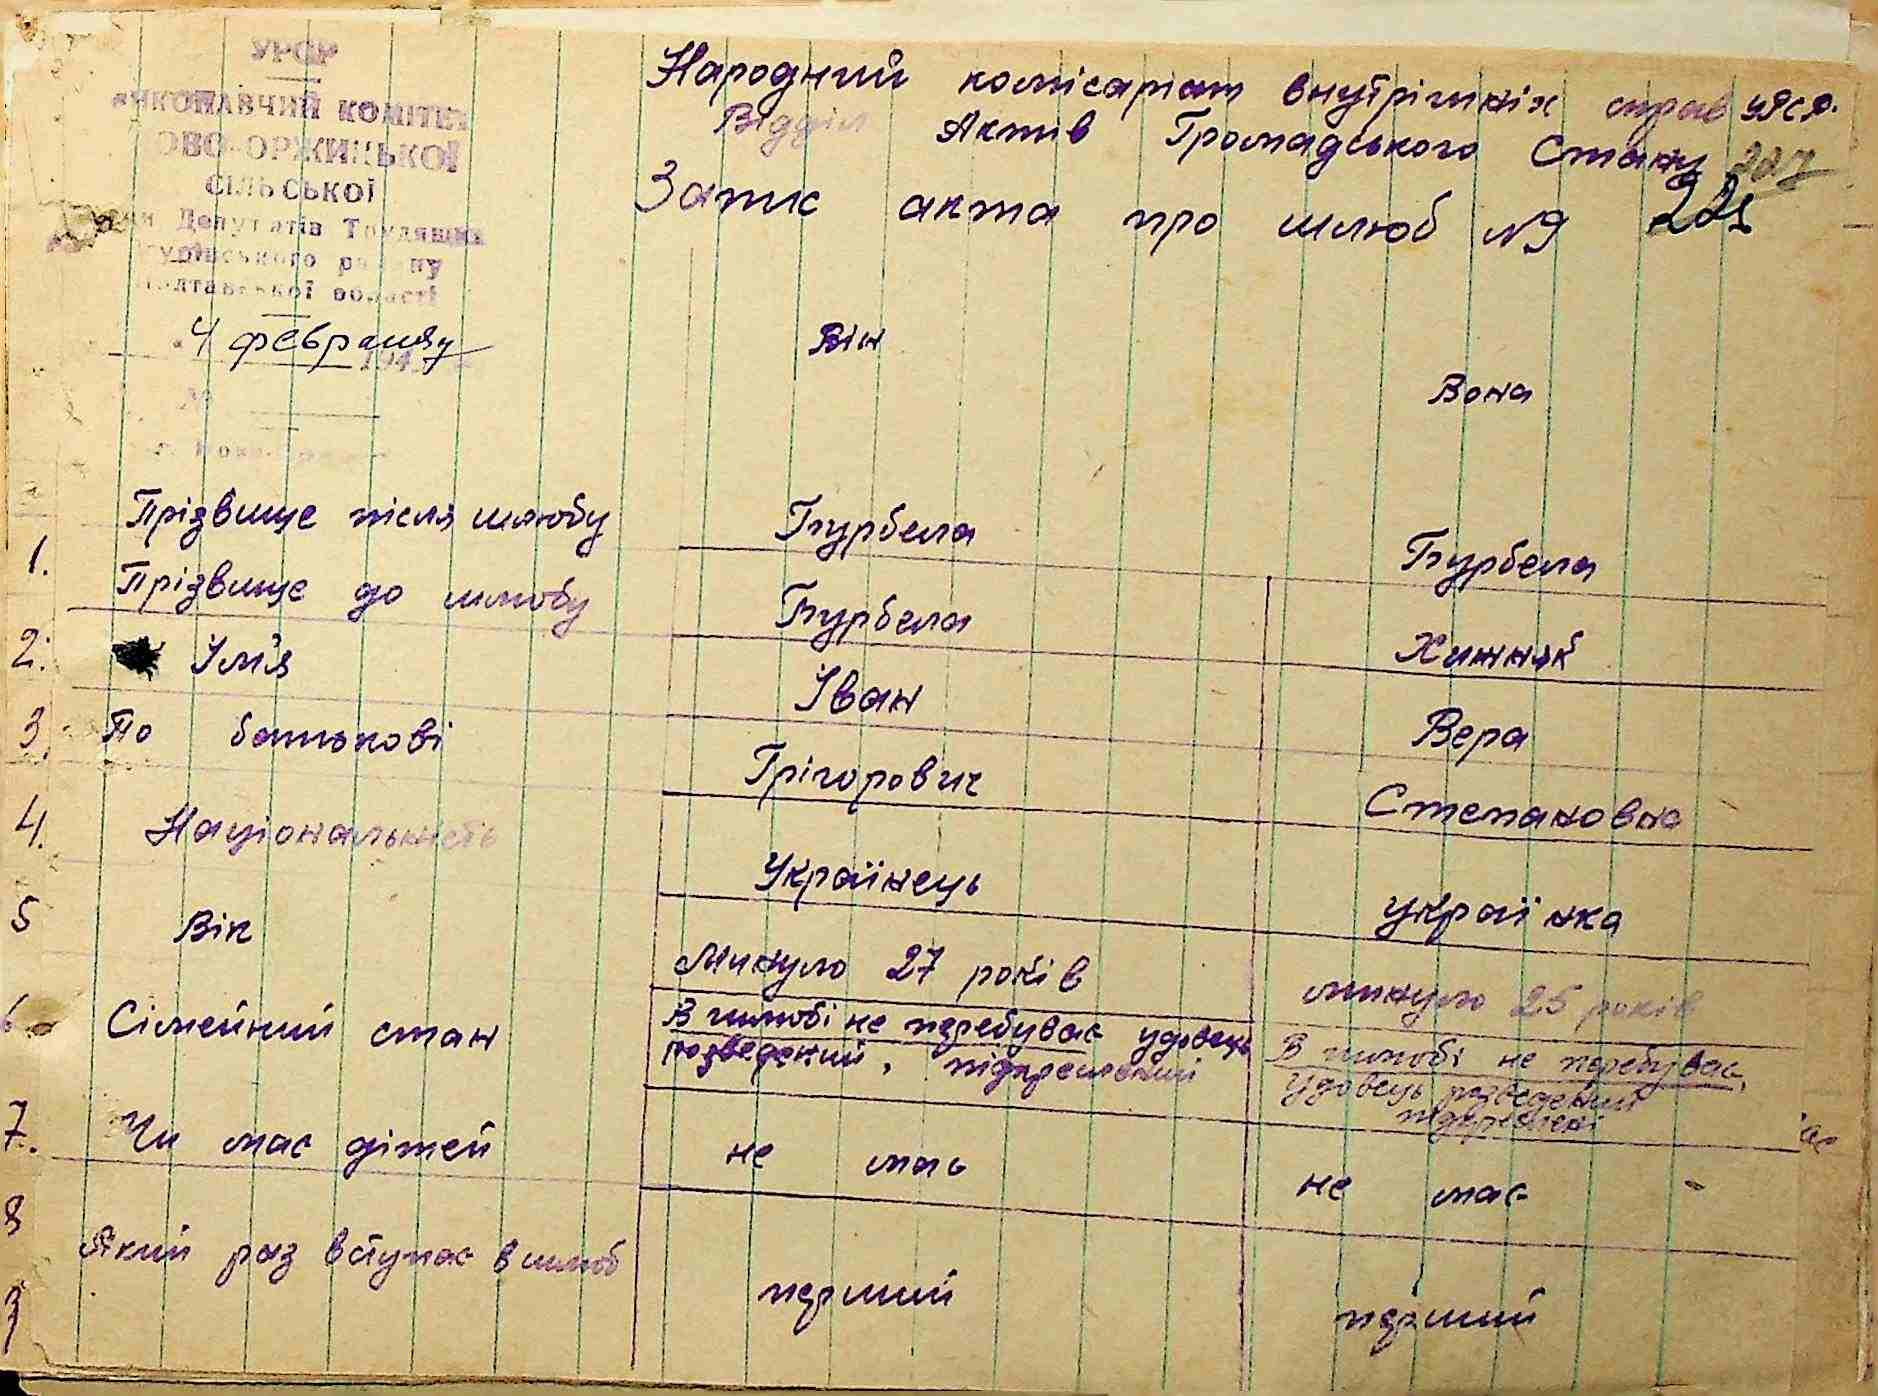 УРСР
ВИКОНАВЧИЙ КОМІТЕТ
ОВО-ОРЖИЦЬКОЇ
СІЛЬСЬКОЇ
Депутатів Трудящих
району
Полтавської області
4 февраляу
194
№
Народний комісаріат внутрішніх справ УРСР.
Відділ Актів Громадського Стану
Запис акта про шлюб №9
Він
Вона
Прізвище після шлюбу Гурбела Гурбела
1. Прізвище до шлюбу Гурбела Хижняк
2. Ім'я Іван Вера
3. По батькові Грігорович Степановна
4. Національність Українець Українка
5 Вік минуло 27 років минуло 25 років
6 Сімейний стан В шлюбі не перебуває удовець
розведений, підкреслений
В шлюбі не перебуває,
Удовець розведений
7. Чи має дітей не має не має
8 Який раз вступає в шлюб перший перший
9